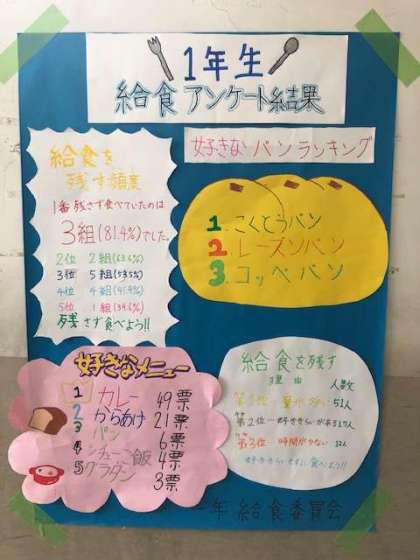 1年生
給食アンケート結果
給食を
残す頻度
1番残さず食べていたのは
3組(81.4%)でした。
2位 2組(63.6%)
3位 5組(53.5%)
4位 4組(41.9%)
5位 1組(39.6%)
残さず食べよう!!
好きなパンランキング
1.こくとうパン
2.レーズンパン
3.コッペパン
好きなメニュー
1 カレー 49票
2 からあげ 21票
3 パン 6票
4 シチューご飯 4票
5 グラタン 3票
給食を残す
理由 人数
第1位 量が多い 51人
第2位 好ききらいがある
第3位 時間が少ない 12人
食べよう!!
一年 給食委員会